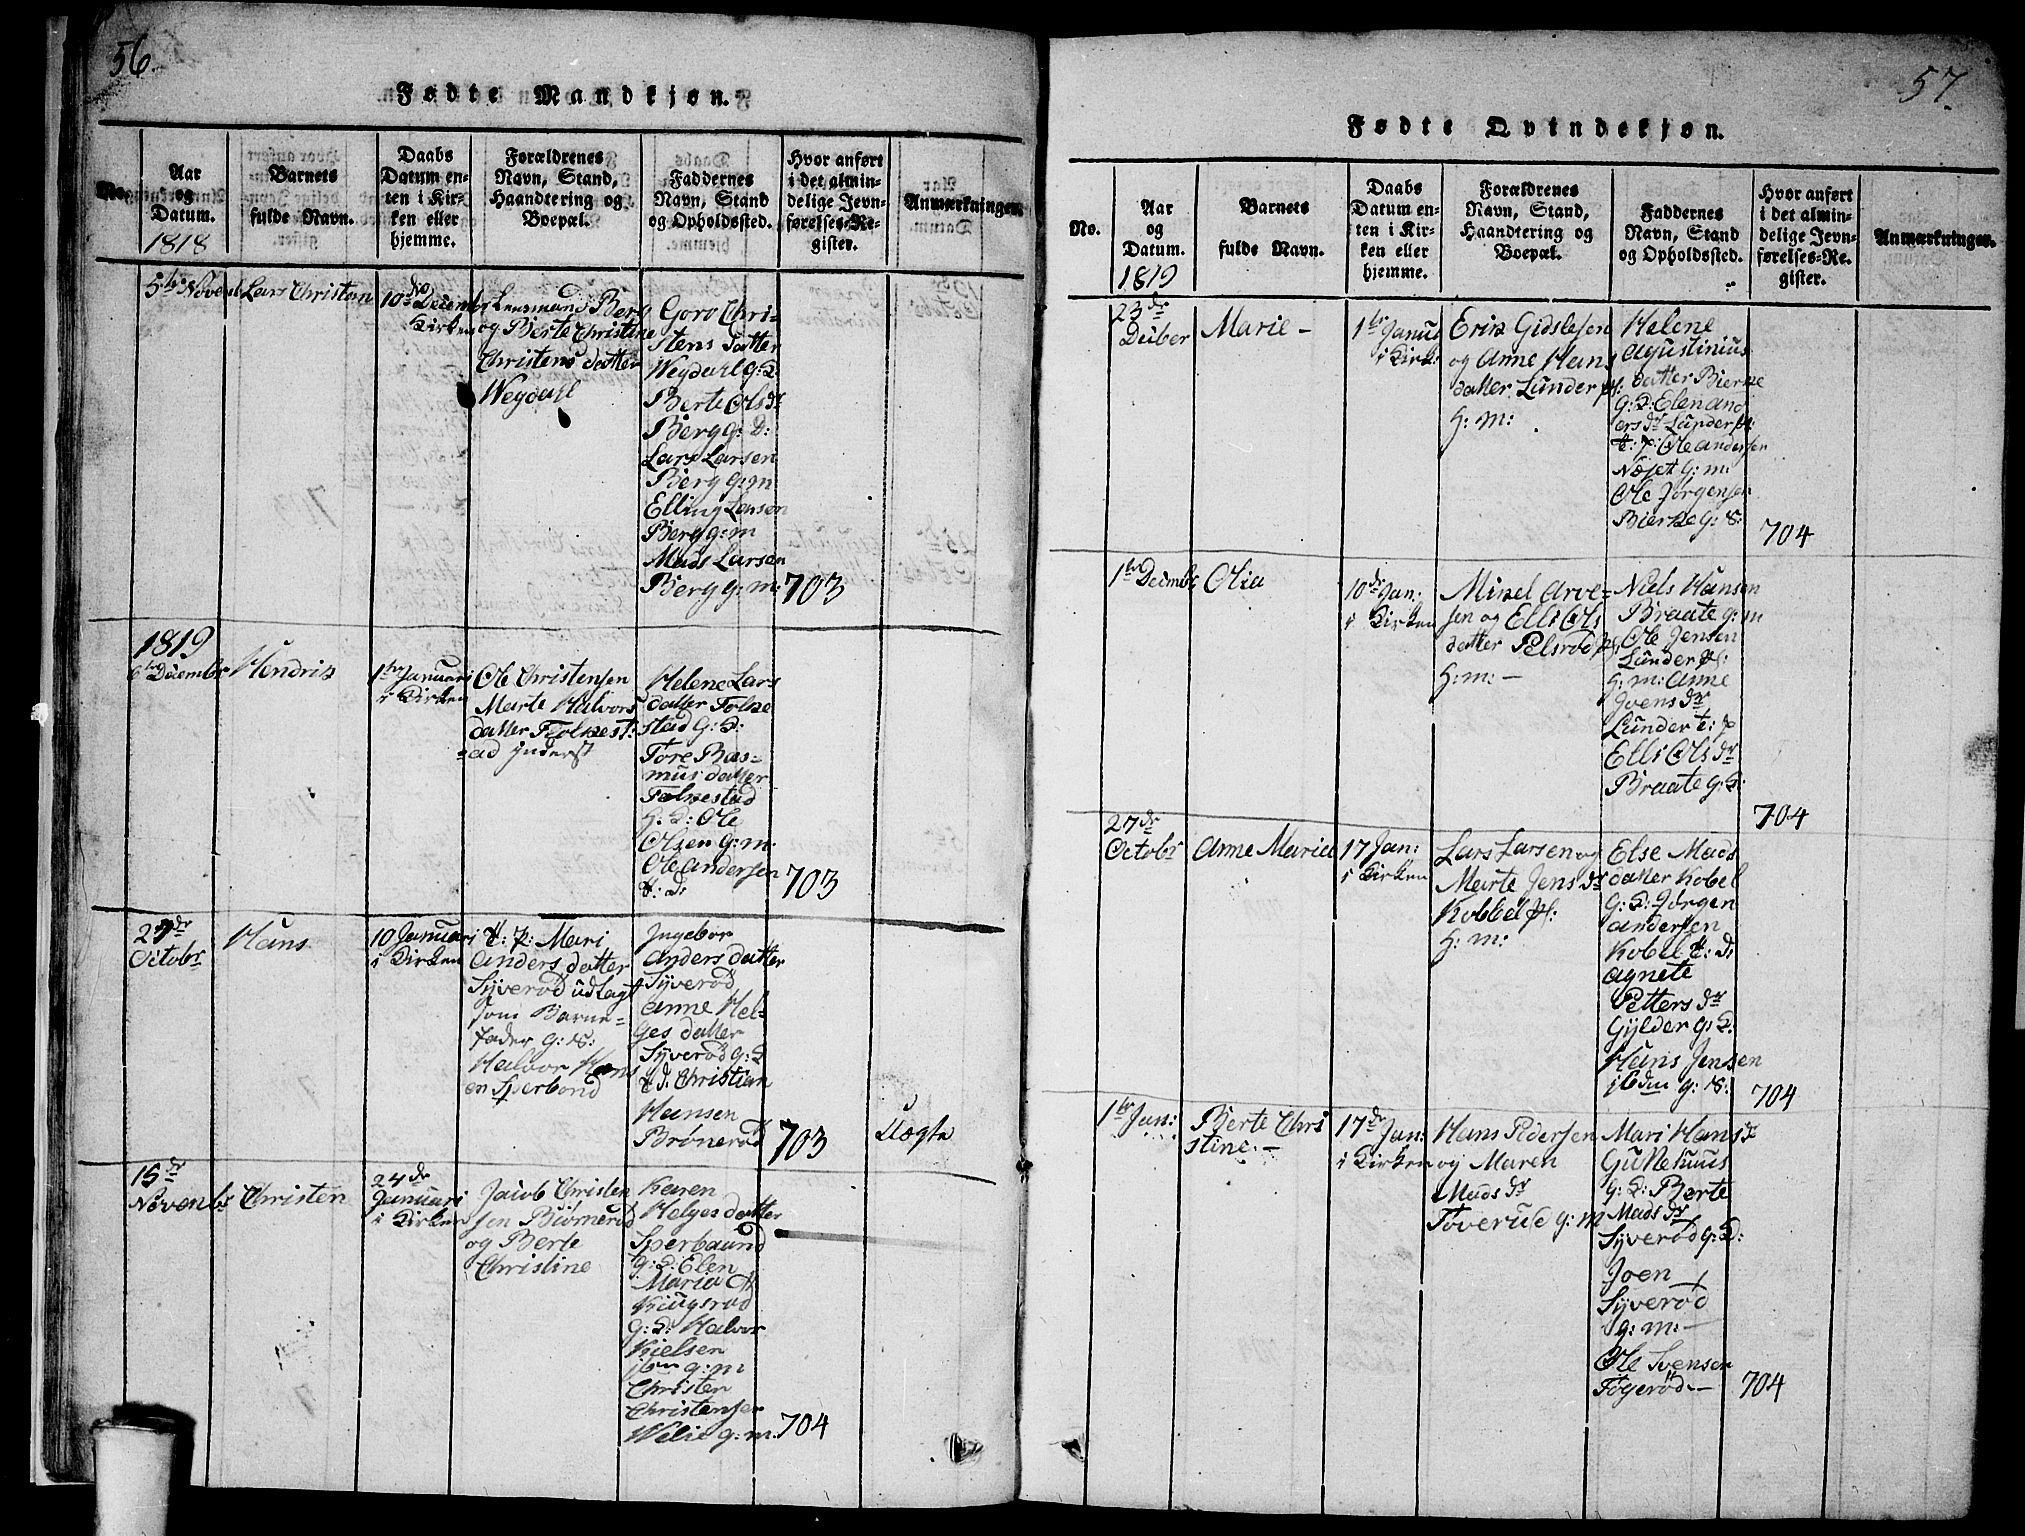 56.
Fødte Mandkjøn.
No.
Aar
og
Datum.
1818
Barnets
fulde Navn.
Daabs
Datum en-
ten i Kir-
ken eller
hjemme.
Forældrenes
Navn, Stand,
Haandtering og
Boepæl.
Faddernes
Navn, Stand
og Opholdssted.
Hvor anført
i det almin-
delige Jevn-
førelses-Re-
gister.
Anmærkninger.
5te Novem
Lars Christian
10de Decembr
Kirken
Lensmand Berg
og Berte Christine
Christens datter
Weydahl
Goro Chri-
stens datter
Weydahl g: d:
Berte Ols dr
Berg g: d:
Lars Larsen
Berg g: m
Elling Larsen
Berg g: m
Mads Larsen
Berg g: m:
703
1819
6te Decembr
Hendrik
1te Januari
i Kirken
Ole Christensen
Marte Halvors
datter Folkest:
ad inderst
Helene Lars
datter Folke
stad g: d:
Tore Ras-
mus datter
Folkestad
h: d: Ole
Olsen g: m:
Ole Andersen
t: d:
703
27de
Octobr
Hans
10 Januari
i Kirken
t: p: Mari
Anders datter
Syverød udlagt
som Barne-
fader g: s:
Halvor Hans
en Sperbond
Ingebor
Anders datter
Syverød
Anne Hel-
ges datter
Syverød g: d
t d: Christian
Hansen
Brønerød
703
Uægte
15de
Novenbr
Christen
24de
Januari
i Kirken
Jacob Christen
sen Biørnerød
og Berte
Christine
Karen
Helges datter
Sperbaund
g: d: Elen
Maria
Kiugsrød
g: d: Halvor
Nielsen
ibm g: m
Christen
Christensen
Wilie g: m.
704
57.
Fødte Qvindekjøn.
No.
Aar
og
Datum.
1819
Barnets
fulde Navn.
Daabs
Datum en-
ten i Kir-
ken eller
hjemme.
Forældrenes
Navn, Stand,
Haandtering og
Boepæl.
Faddernes
Navn, Stand
og Opholdssted.
Hvor anført
i det almin-
delige Jevn-
førelses-Re-
gister.
Anmærkninger.
23de
Deiber
Marie -
1te Januar
i Kirk:
Erik Gidslesen
og Anne Hans
datter Lunder pl:
h: m:
Helene
Agustinius
datter Bierke
g: d: Elen And
ers dr Lunder pl:
t: p: Ole Andersen
Næset g: m:
Ole Jørgensen
Bierke g: s:
704
1te Decmbr
Olia
10de Jan:
i Kirken
Mikel Arve-
sen og Elli Ols
datter Pelsrød pl:
h: m: -
Niels Hansen
Braate g: m
Ole Jensen
Lunder pl:
h: m: Anne
Ivens dr
Lunder t: p
Elli Ols dr
Braate g: d:
704
27de
Octobr
Anne Maria
17 Jan:
i Kirken
Lars Larsen og
Marte Jens dr
Kobbel pl:
h: m:
Else Mads
datter Kobel
g: d: Jørgen
Andersen
Kobel t: d:
Agnete
Petters dr
Gylder g: d:
Hans Jensen
ibdm g: s:
704
1te Jan:
Berte Chri
stine. -
17de
Jan:
i Kirken
Hans Pedersen
og Maren
Mads dr
Toverud g: m
Mari Hans dr
Gullekuus
g: d: Berte
Mads dr
Syverød g: d:
Joen
Syverød
g: m: -
Ole Svensen
Togerød. -
704